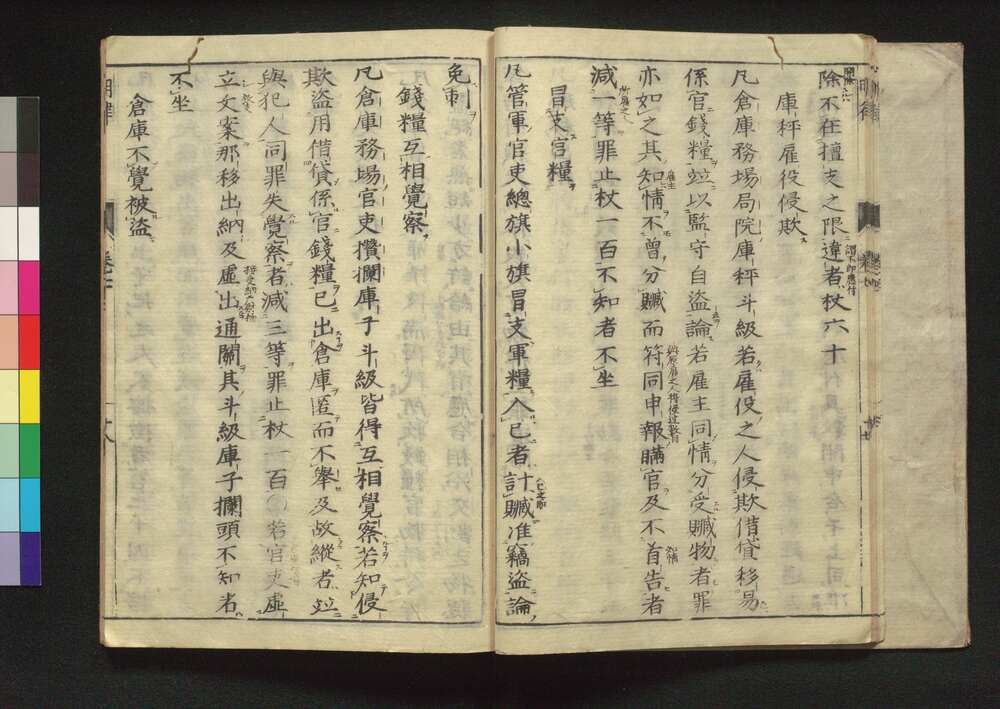 除不在擅支之限違者杖六十
庫秤雇役侵欺
凡倉庫務場局院庫秤斗級若雇役之人侵欺借貸移易
係官錢糧並以監守自盗論若雇主同情分受贓物者罪
亦如之其知情不曾分贓而符同申報瞞官及不首告者
減一等罪止杖一百不知者不坐
冒支官糧
凡管軍官吏總旗小旗冒支軍糧入己者計贓准竊盗論
免刺
錢糧互相覺察
凡倉庫務場官吏攅攔庫子斗級皆得互相覺察若知侵
欺盗用借貸係官錢糧已出倉庫匿而不舉及故縱者並
與犯人同罪失覺察者減三等罪止杖一百○若官吏虚
立文案那移出納及虚出通關其斗級庫子攔頭不知者
不坐
倉庫不覺被盗